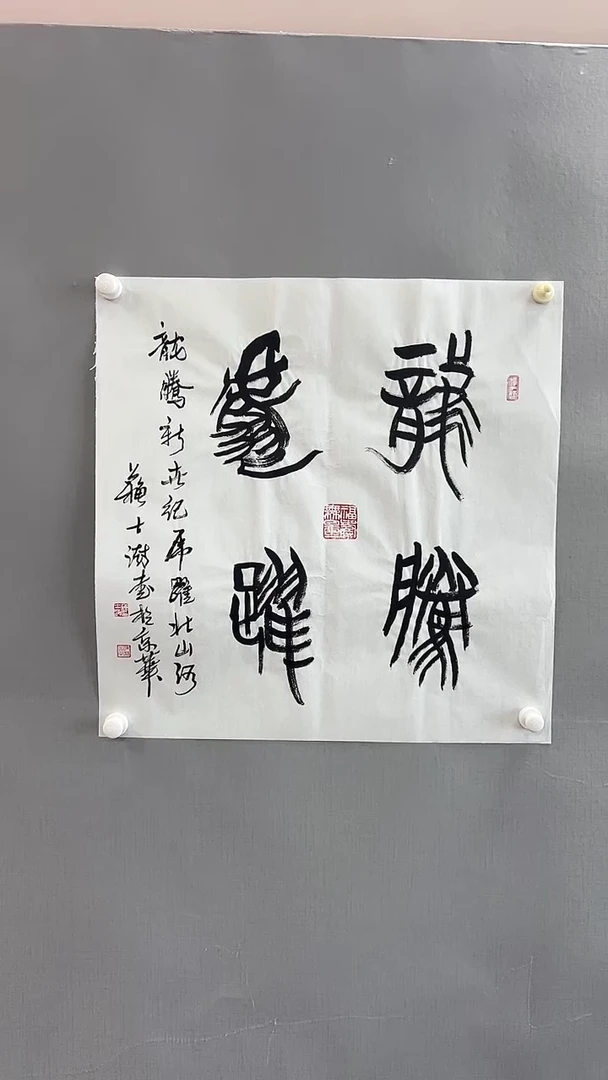 龍騰
虎躍
龍騰新世紀虎躍壯山河
蘇士澍書於京華